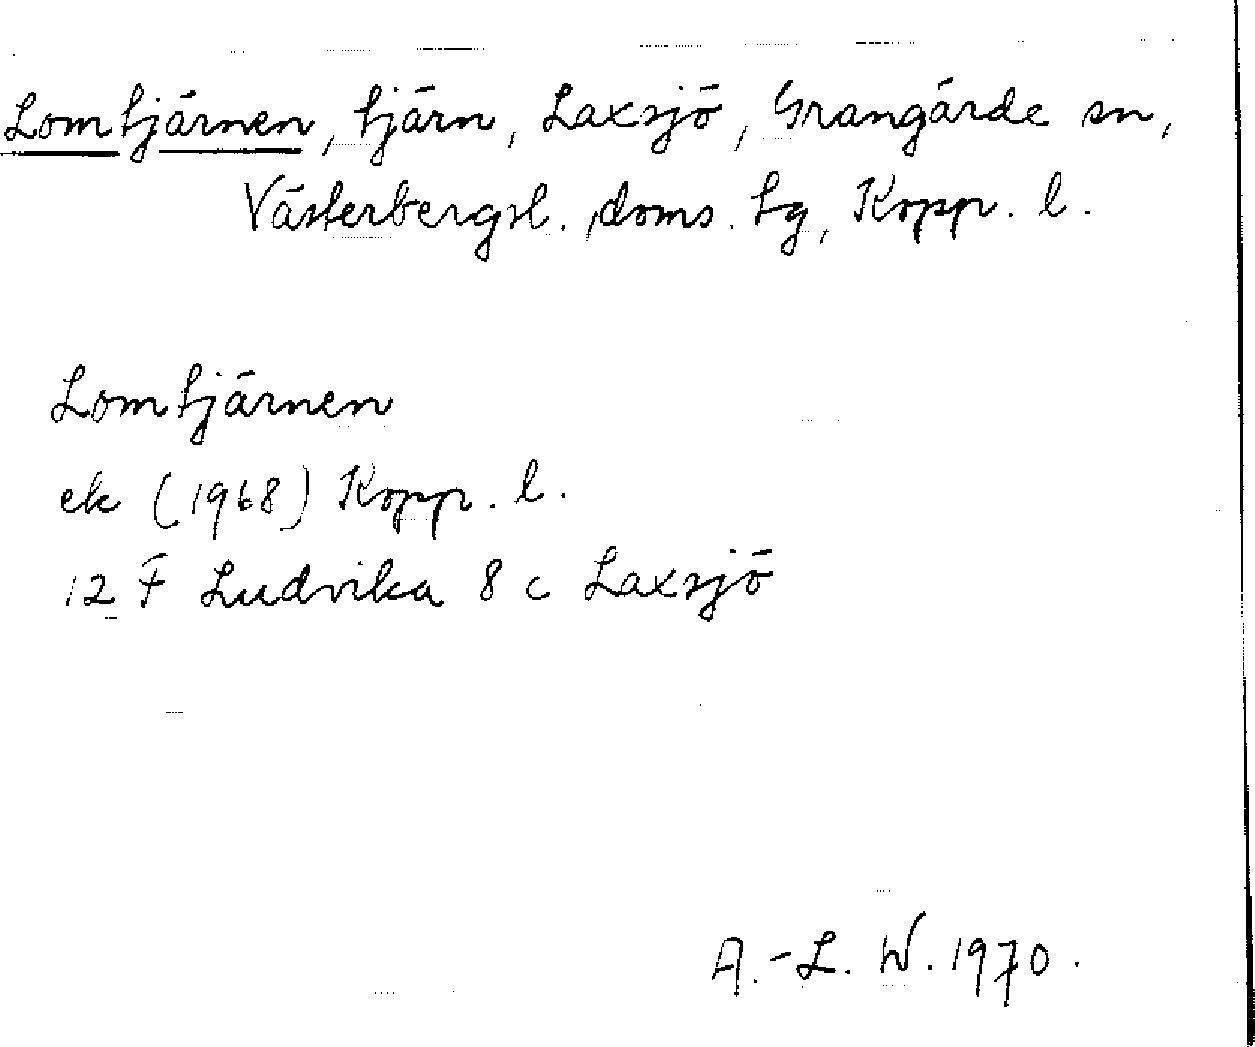 Lomtjärnen, tjärn, Laxsjö, Grangärde sn,
Västerbergsl. doms. tg, Kopp. l.
Lomtjärnen
ek (1968) Kopp. l.
12 F Ludvika 8 c Laxsjö
A.-L. W. 1970.